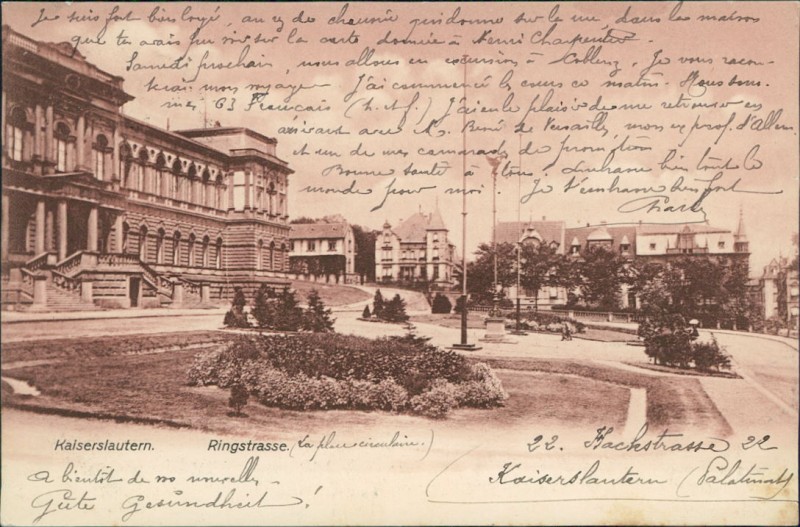 Je suis fort bien logé, au rez de chaussée qui donne sur la rue, dans les maisons
que tu avais pu voir sur la carte donnée à Henri Charpentier.
Samedi prochain, nous allons en excursion à Coblenz. Je vous racon-
terai mon voyage. J'ai commencé les cours ce matin. Nous som-
mes 63 Français (h. et f.) J'ai eu le plaisir de me retrouver en
arrivant avec Mr. René de Versailles, mon ex prof. d'Allem.
et un de mes camarades de promotion
Bonne santé à tous. Embrasse bien tout le
monde pour moi. Je t'embrasse bien fort
Kaiserslautern. Ringstrasse. (La place circulaire.)
22. Hackstrasse 22
Kaiserslautern (Palatinat)
A bientôt de vos nouvelles.
Gute Gesundheit!